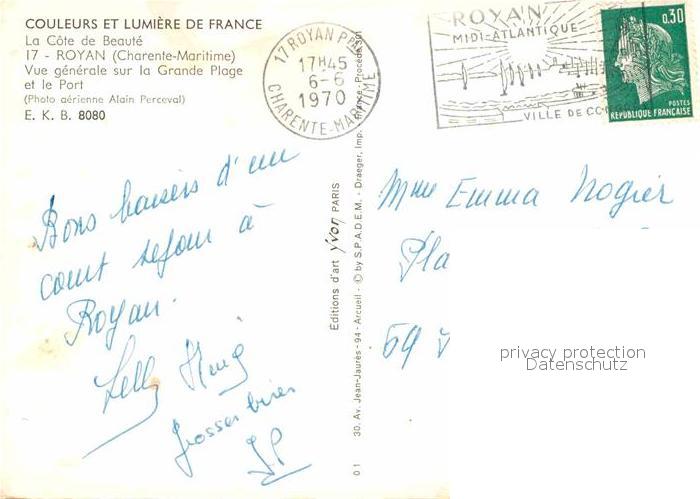 COULEURS ET LUMIÈRE DE FRANCE
La Côte de Beauté
17 - ROYAN (Charente-Maritime)
Vue générale sur la Grande Plage
et le Port
(Photo aérienne Alain Perceval)
E. K. B. 8080
17 ROYAN Ppal
17H45
6-6
1970
CHARENTE-MARITIME
ROYAN
MIDI-ATLANTIQUE
VILLE DE CO
0,30
POSTES
RÉPUBLIQUE FRANÇAISE
Bons baisers d'un
court séjour à
Royan.
JP
Editions d'art yvon PARIS
30, Av. Jean-Jaurès - 94 - Arcueil - © by S.P.A.D.E.M. - Draeger, Imp. France - Procédé 301
01
Mme Emma Nogier
Pla
69 V
privacy protection
Datenschutz